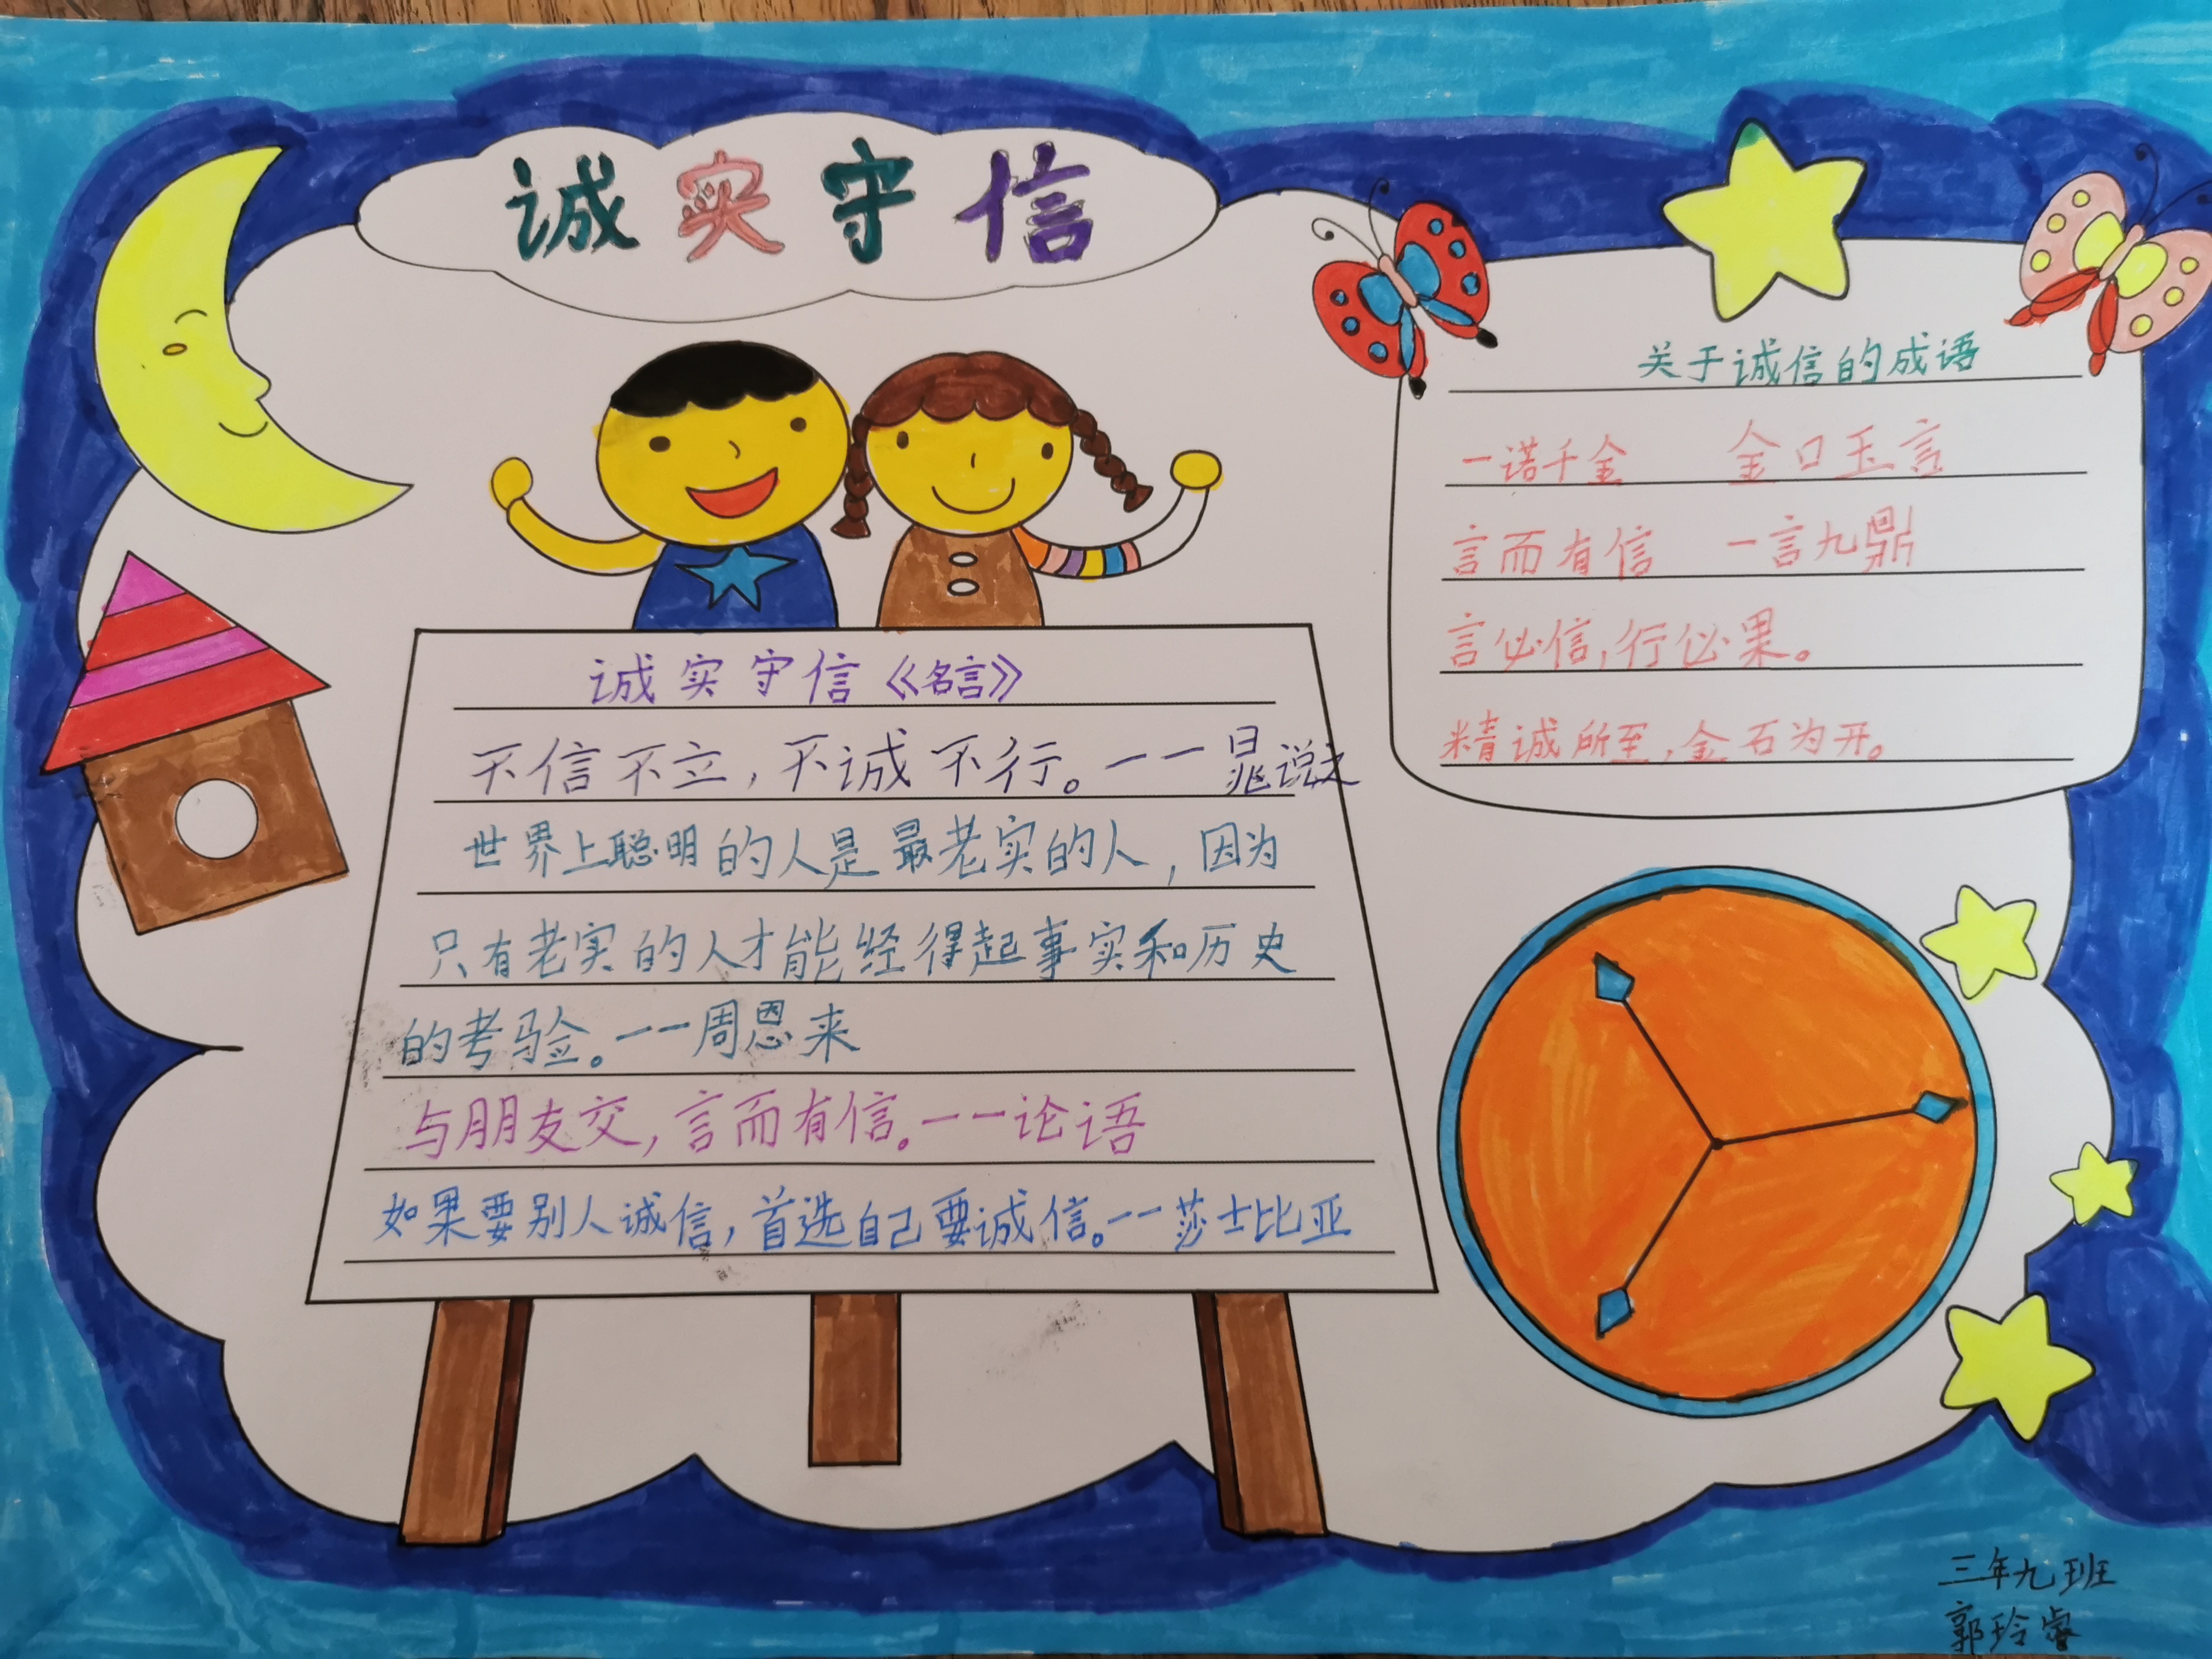 诚实守信
诚实守信《名言》
不信不立，不诚不行。一一晁说之
世界上聪明的人是最老实的人，因为
只有老实的人才能经得起事实和历史
的考验。一一周恩来
与朋友交，言而有信。一一论语
如果要别人诚信，首选自己要诚信。一一莎士比亚
关于诚信的成语
一诺千金 金口玉言
言而有信 一言九鼎
言必信，行必果。
精诚所至，金石为开。
三年九班
郭玲睿